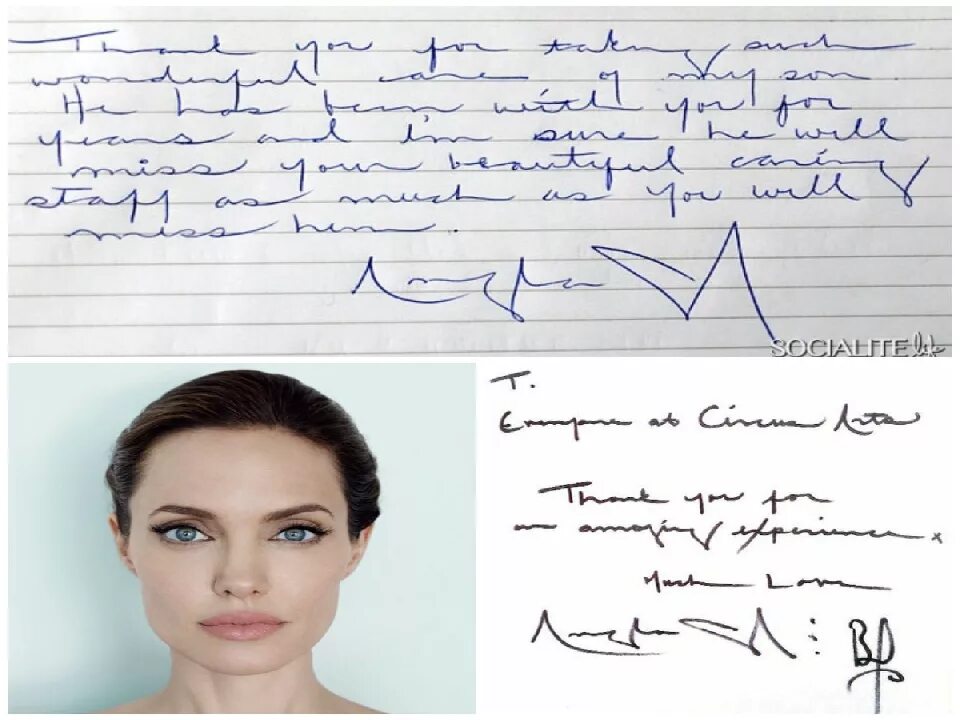 Thank you for taking such
wonderful care of my son.
He has been with you for
years and I'm sure he will
miss your beautiful caring
staff as much as you will
miss him.
SOCIALITE life
T.
Everyone at Circus Arts
Thank you for
an amazing experience x
Much Love
BP